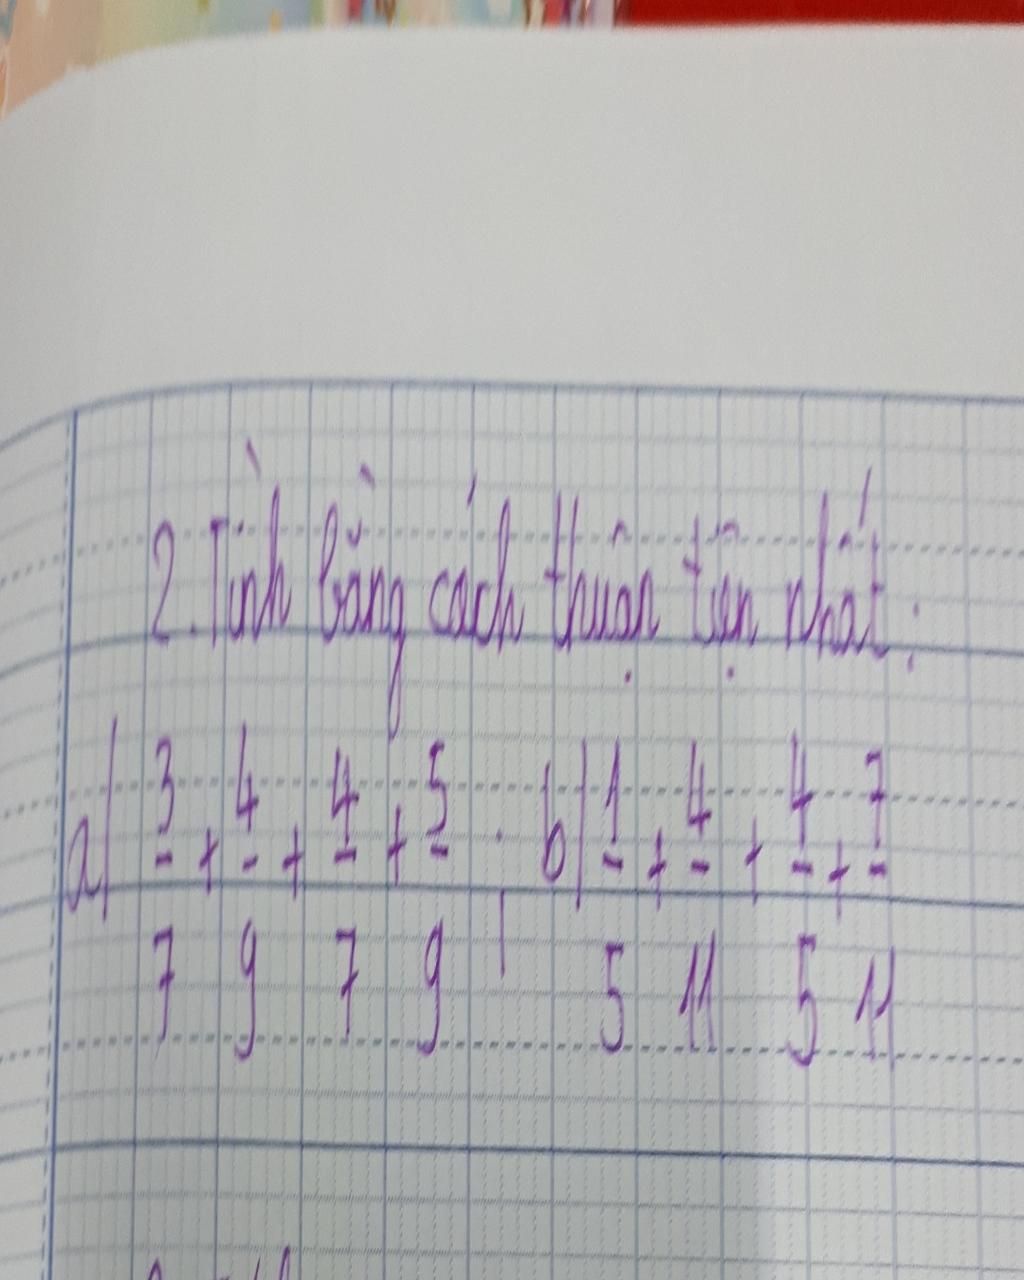 2. Tình bằng cách thuận tiện nhất:
a) 3/7 + 4/9 + 4/7 + 5/9 ; b) 1/5 + 4/11 + 4/5 + 7/11